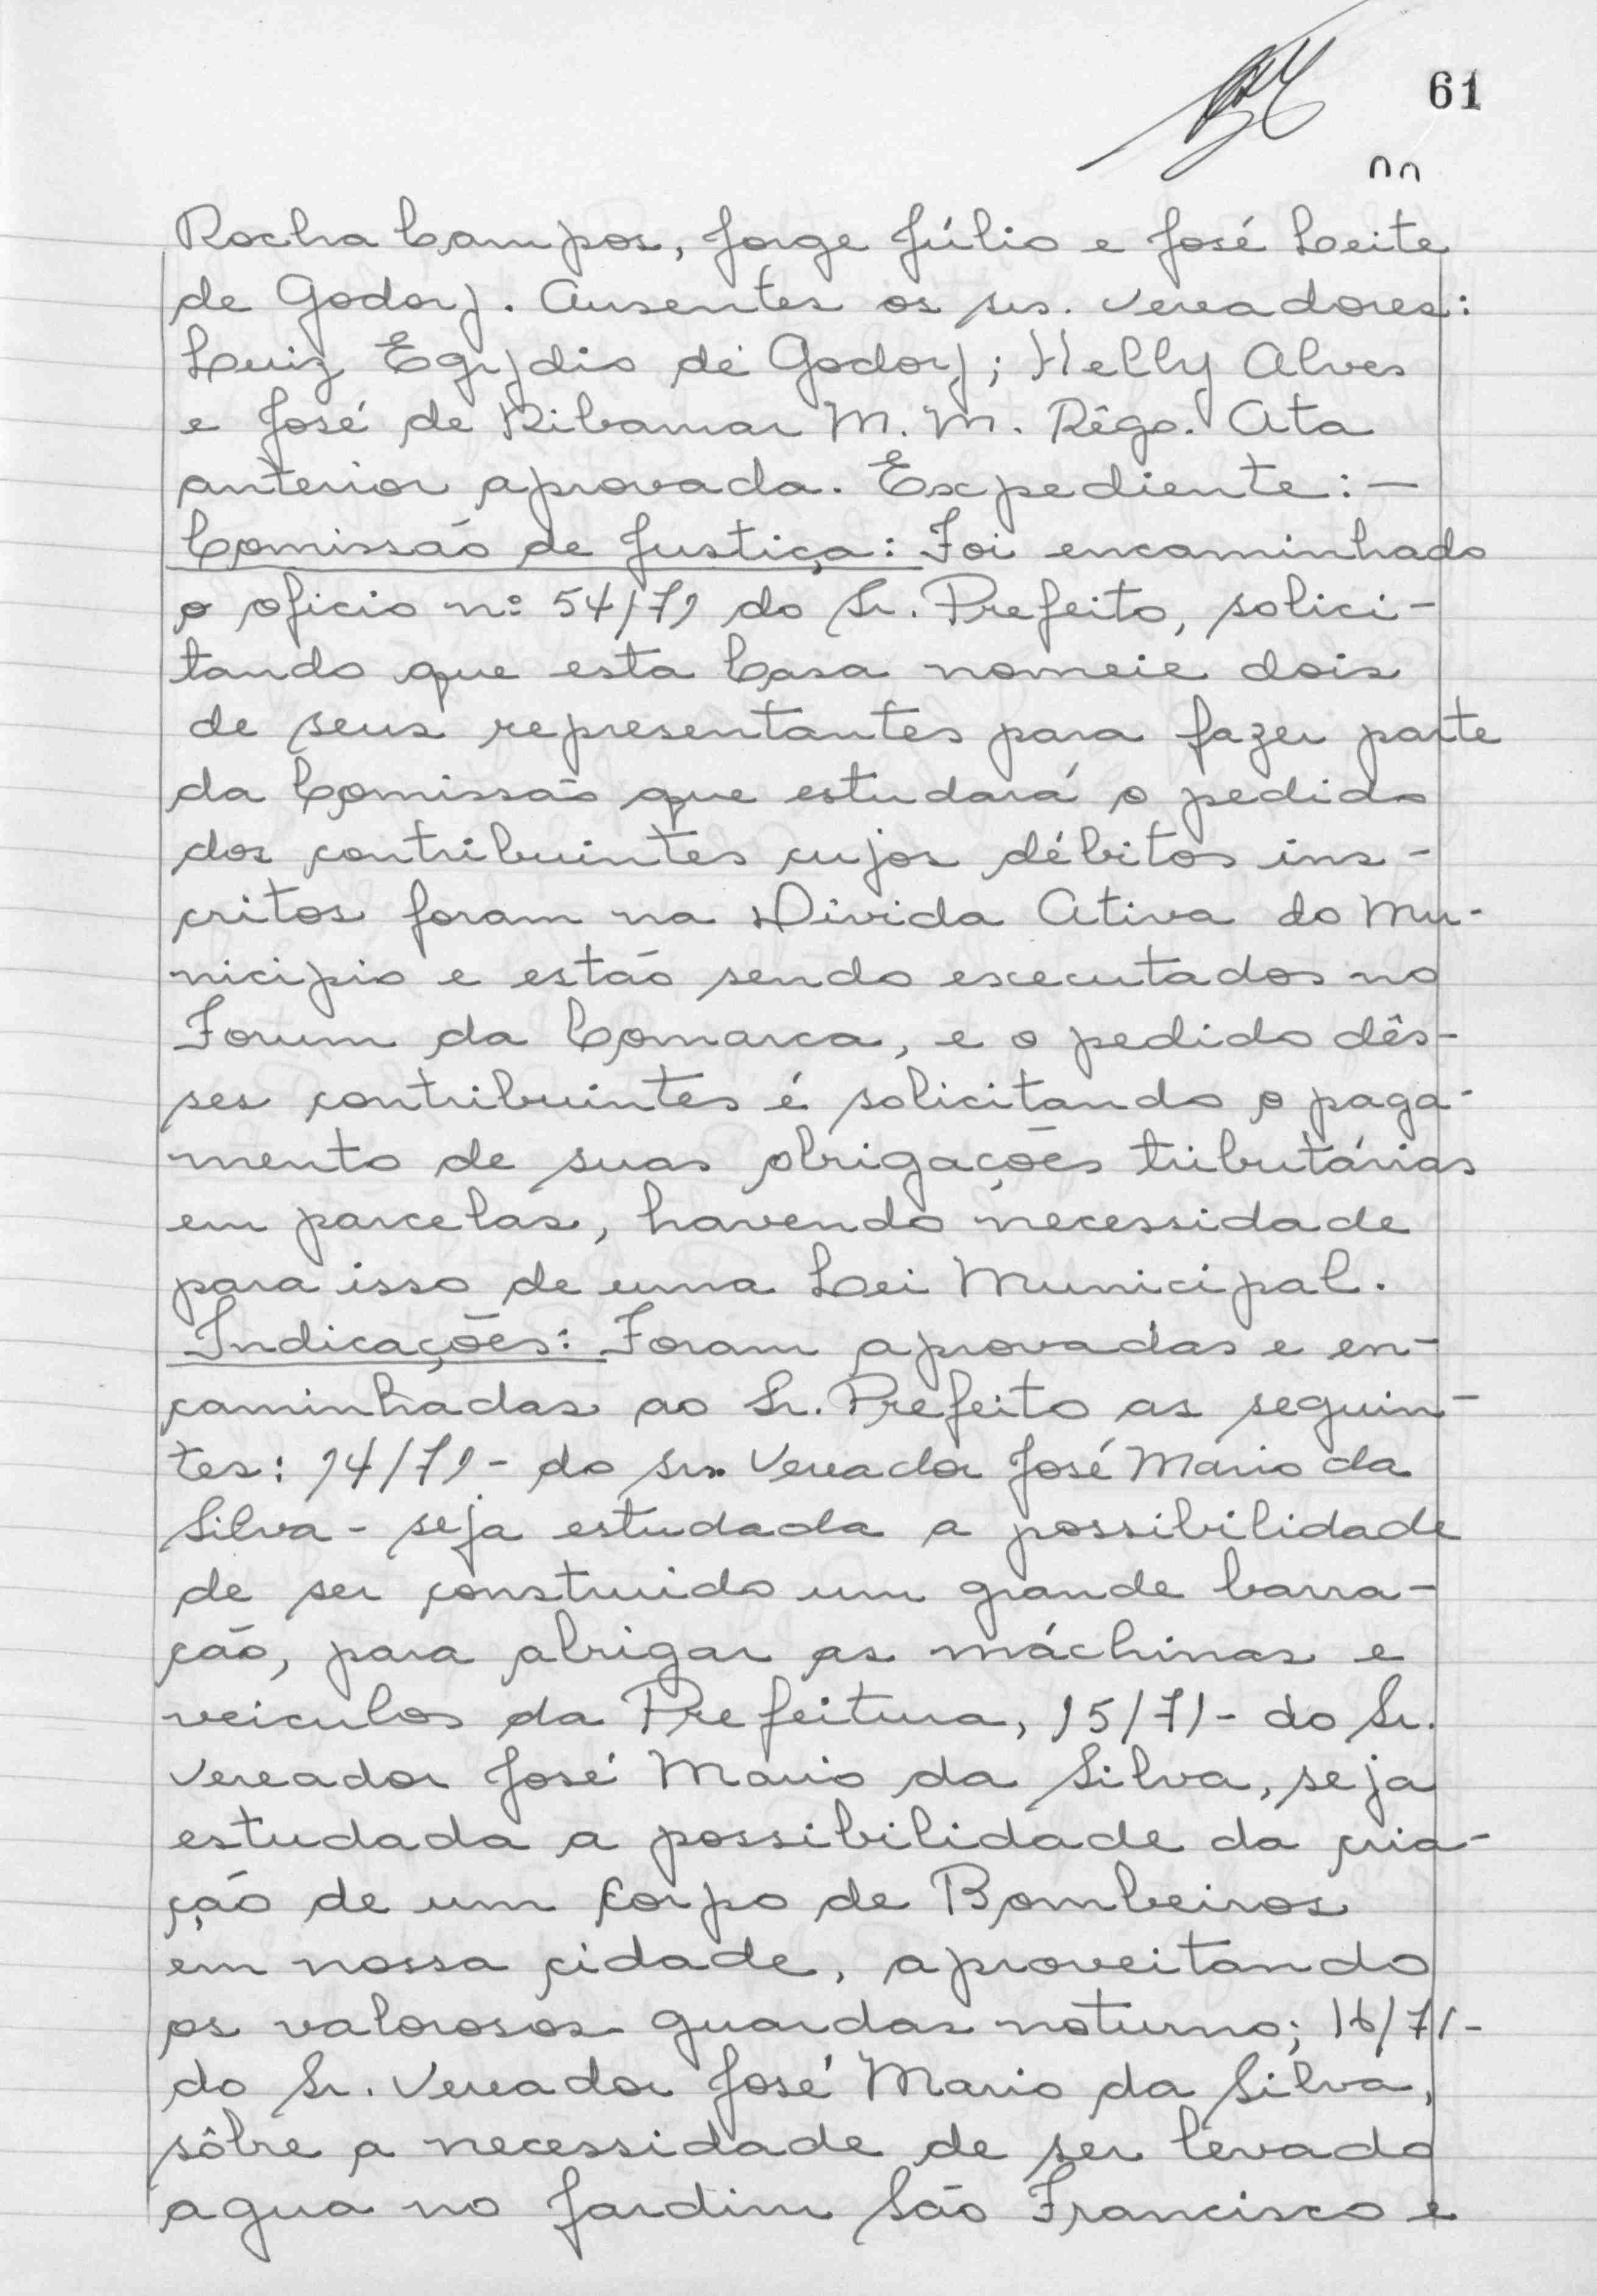 61
Rocha Campos, Jorge Júlio e José Leite
de Godoy. Ausentes os srs. vereadores:
Luiz Egydio de Godoy; Helly Alves
e José de Ribamar M. M. Rêgo. Ata
anterior aprovada. Expediente: -
Comissão de Justiça: Foi encaminhado
o oficio nº 54/71 do Sr. Prefeito, solici-
tando que esta Casa nomeie dois
de seus representantes para fazer parte
da Comissão que estudará o pedido
dos contribuintes cujos débitos ins-
critos foram na Divida Ativa do Mu-
nicipio e estão sendo executados no
Forum da Comarca, e o pedido dês-
ses contribuintes é solicitando o paga-
mento de suas obrigações tributárias
em parcelas, havendo necessidade
para isso de uma Lei Municipal.
Indicações: Foram aprovadas e en-
caminhadas ao Sr. Prefeito as seguin-
tes: 14/71 - do sr. Vereador José Mario da
Silva - seja estudada a possibilidade
de ser construido um grande barra-
cão, para abrigar as máchinas e
veiculos da Prefeitura, 15/71 - do Sr.
Vereador José Mario da Silva, seja
estudada a possibilidade da cria-
ção de um Corpo de Bombeiros
em nossa cidade, aproveitando
os valorosos guardas noturno; 16/71 -
do Sr. Vereador José Mario da Silva,
sôbre a necessidade de ser levado
agua no Jardim São Francisco e